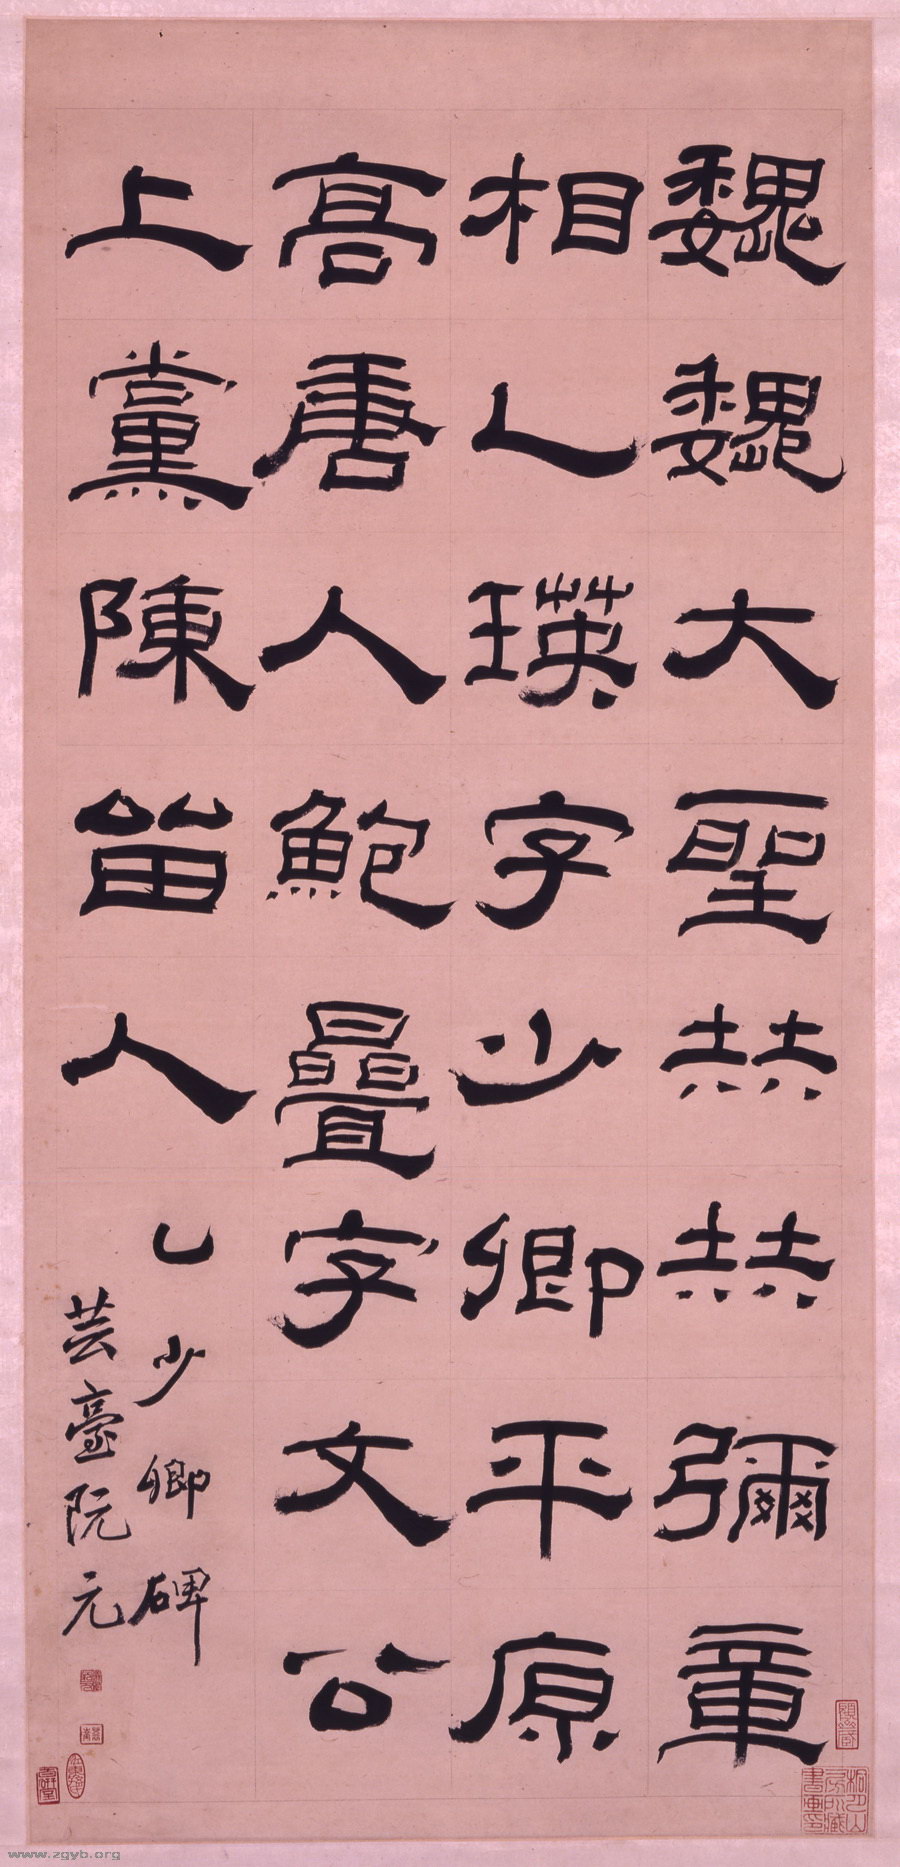 巍巍大聖赫赫彌章
相乙瑛字少卿平原
高唐人鮑疊字文公
上黨陳留人
乙少卿碑
芸臺阮元
www.zgyb.org